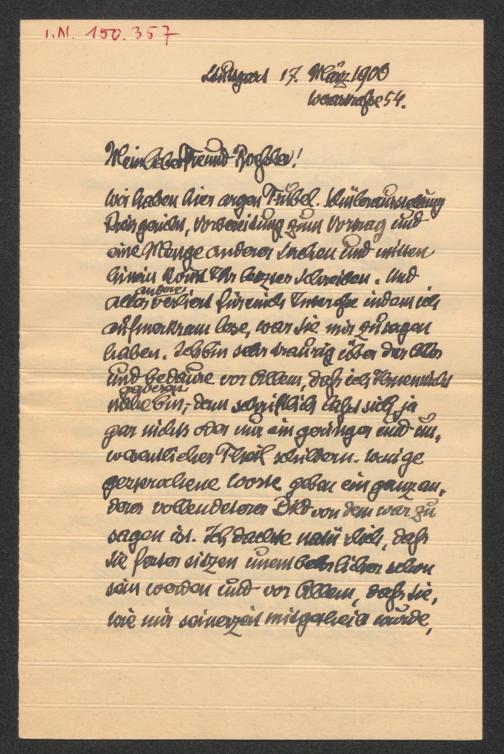 I.N. 150.357
Stuttgart 17. März 1900
Werastraße 54.
Mein lieber Freund Roller!
Wir haben hier argen Trubel.
Preisgericht, Vorbereitung zum Vortrag und
eine Menge anderer Sachen und mitten
hinein kommt Ihr letztes Schreiben. Und
alles andere verliert für mich Interesse indem ich
aufmerksam lese, was Sie mir zu sagen
haben. Ich bin sehr traurig über das Alles
und bedaure vor Allem, daß ich Ihnen nicht
nahe bin, denn schriftlich läßt sich ja
gar nichts oder nur ein geringer und un-
wesentlicher Theil schildern. Wenige
gesprochene Worte geben ein ganz an-
deres vollendeteres Bild von dem was zu
sagen ist. Ich dachte natürlich, daß
Sie fester sitzen unentbehrlicher schon
sein werden und vor Allem, daß Sie,
wie mir seinerzeit mitgeteilt wurde,